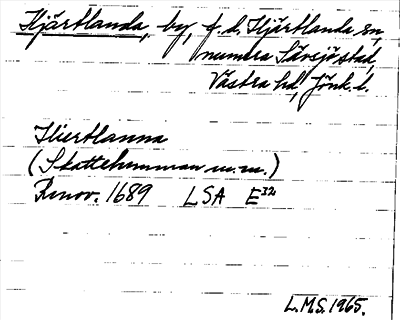 Hjärtlanda, by, f.d. Hjärtlanda sn,
numera Sävsjö stad,
Västra hd, Jönk. l.
Hiertlanna
(Skattehemman m.m.)
Renov. 1689 LSA E32
L.M.S. 1965.